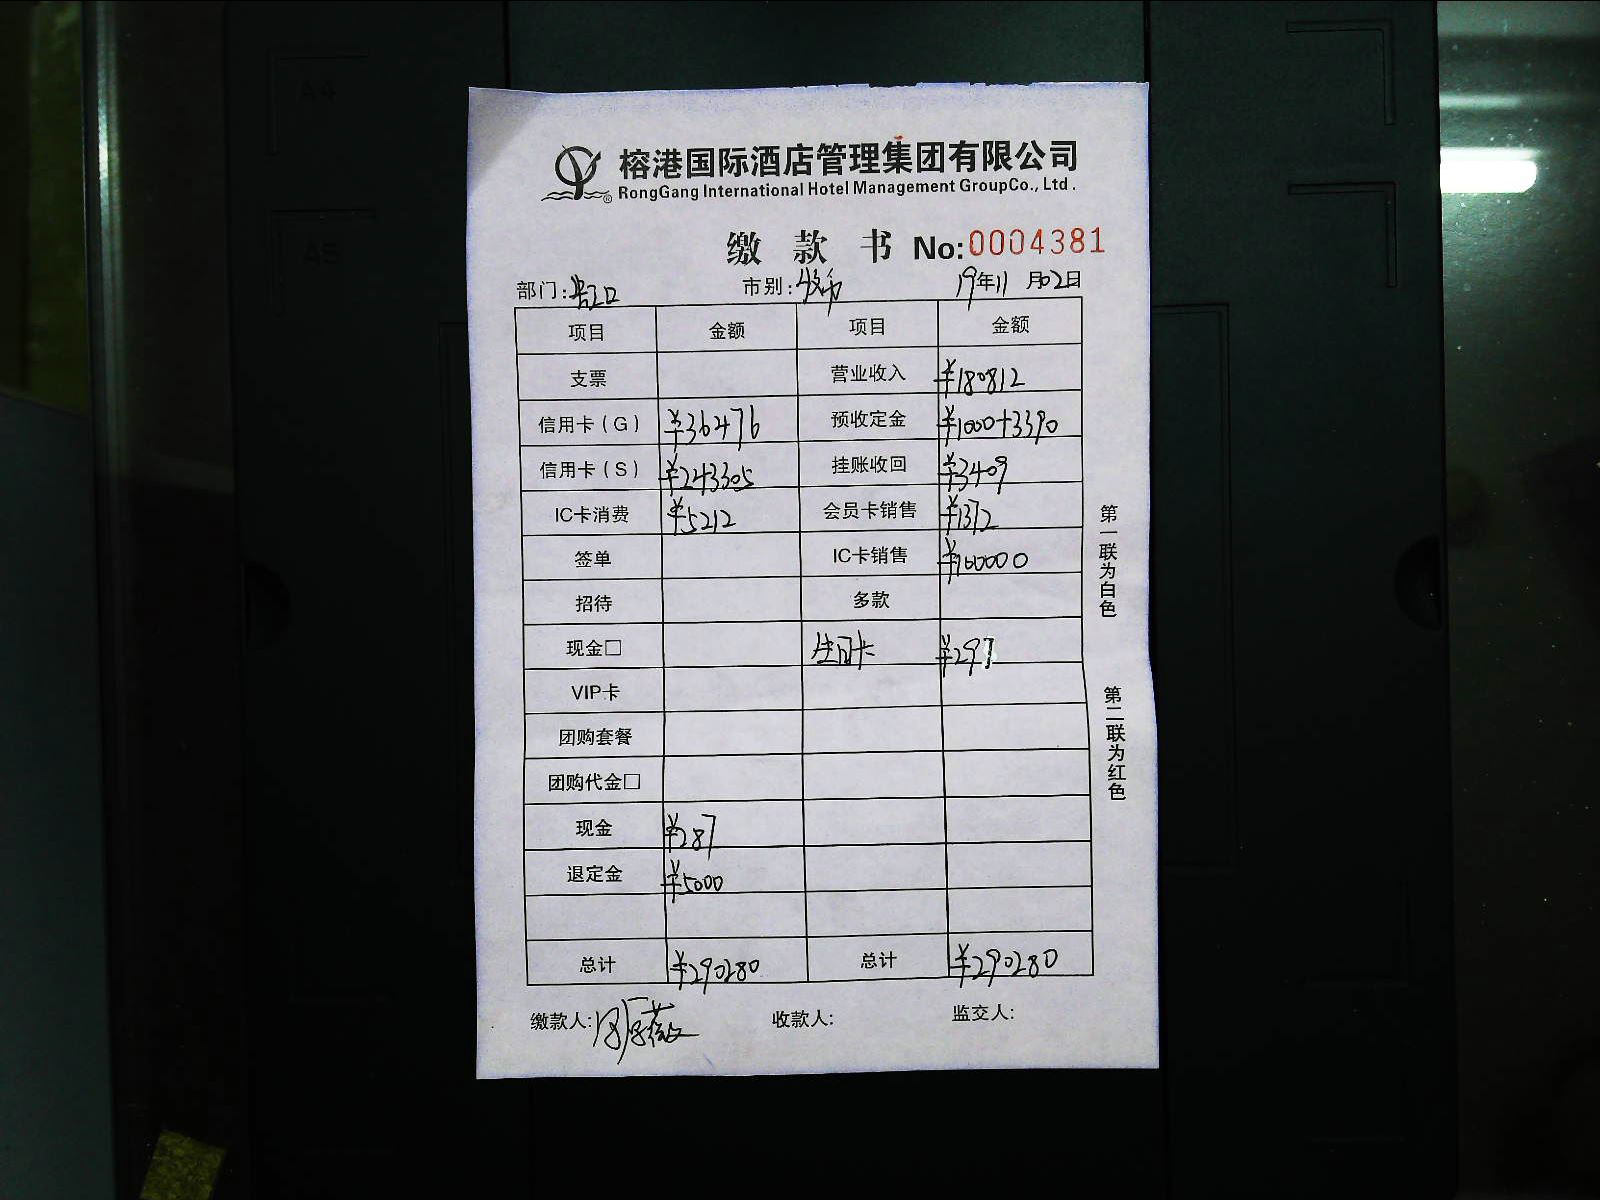 A4
A5
榕港国际酒店管理集团有限公司
® RongGang International Hotel Management GroupCo., Ltd .
缴 款 书 No:0004381
部门: 市别: 19年11月02日
项目 金额 项目 金额
支票 营业收入 ¥180812
信用卡(G) ¥36476 预收定金 ¥1000+3390
信用卡(S) ¥243305 挂账收回 ¥3409
IC卡消费 ¥5212 会员卡销售 ¥1372
签单 IC卡销售 ¥100000
招待 多款
现金□ 生日卡 ¥297
VIP卡
团购套餐
团购代金□
现金 ¥287
退定金 ¥5000
总计 ¥290280 总计 ¥290280
缴款人: 收款人: 监交人:
第一联为白色
第二联为红色